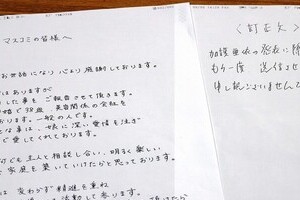 マスコミの皆様へ
お世話になり 心より感謝しております。
ではありますが
した事を ご報告させて頂きます。
で38歳 美容関係の会社を
おります。一般の人です。
な事は、娘に深い愛情を注ぎ
で愛してくれております。
主人と相談し合い、明るく楽しい
家庭を築いていけたらと思っております。
変わらず精進を重ね
活動して参ります。
〈訂正文〉
もう一度 送信させ
申し訳ございません